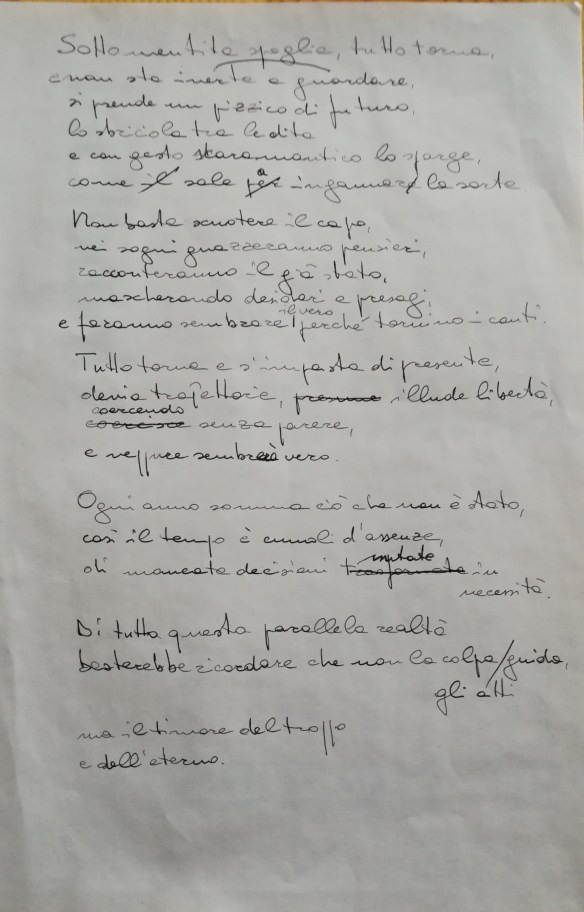 Sotto mentite spoglie, tutto torna,
e non sta inerte a guardare,
si prende un pizzico di futuro,
lo sbriciola tra le dita
e con gesto scaramantico lo sparge,
come il sale per a ingannare la sorte
Non basta scuotere il capo,
nei sogni guazzeranno pensieri,
racconteranno il già stato,
mascherando desideri e presagi,
il vero
e faranno sembrare perché tornino i conti.
Tutto torna e s'impasta di presente,
devia traiettorie, presume illude libertà,
coercendo
coercisce senza parere,
e neppure sembra vero.
Ogni anno somma ciò che non è stato,
così il tempo è cumuli d'assenze,
mutate
di mancate decisioni trasformate in
necessità.
Di tutta questa parallela realtà
basterebbe ricordare che non la colpa/guida,
gli atti
ma il timore del troppo
e dell'eterno.